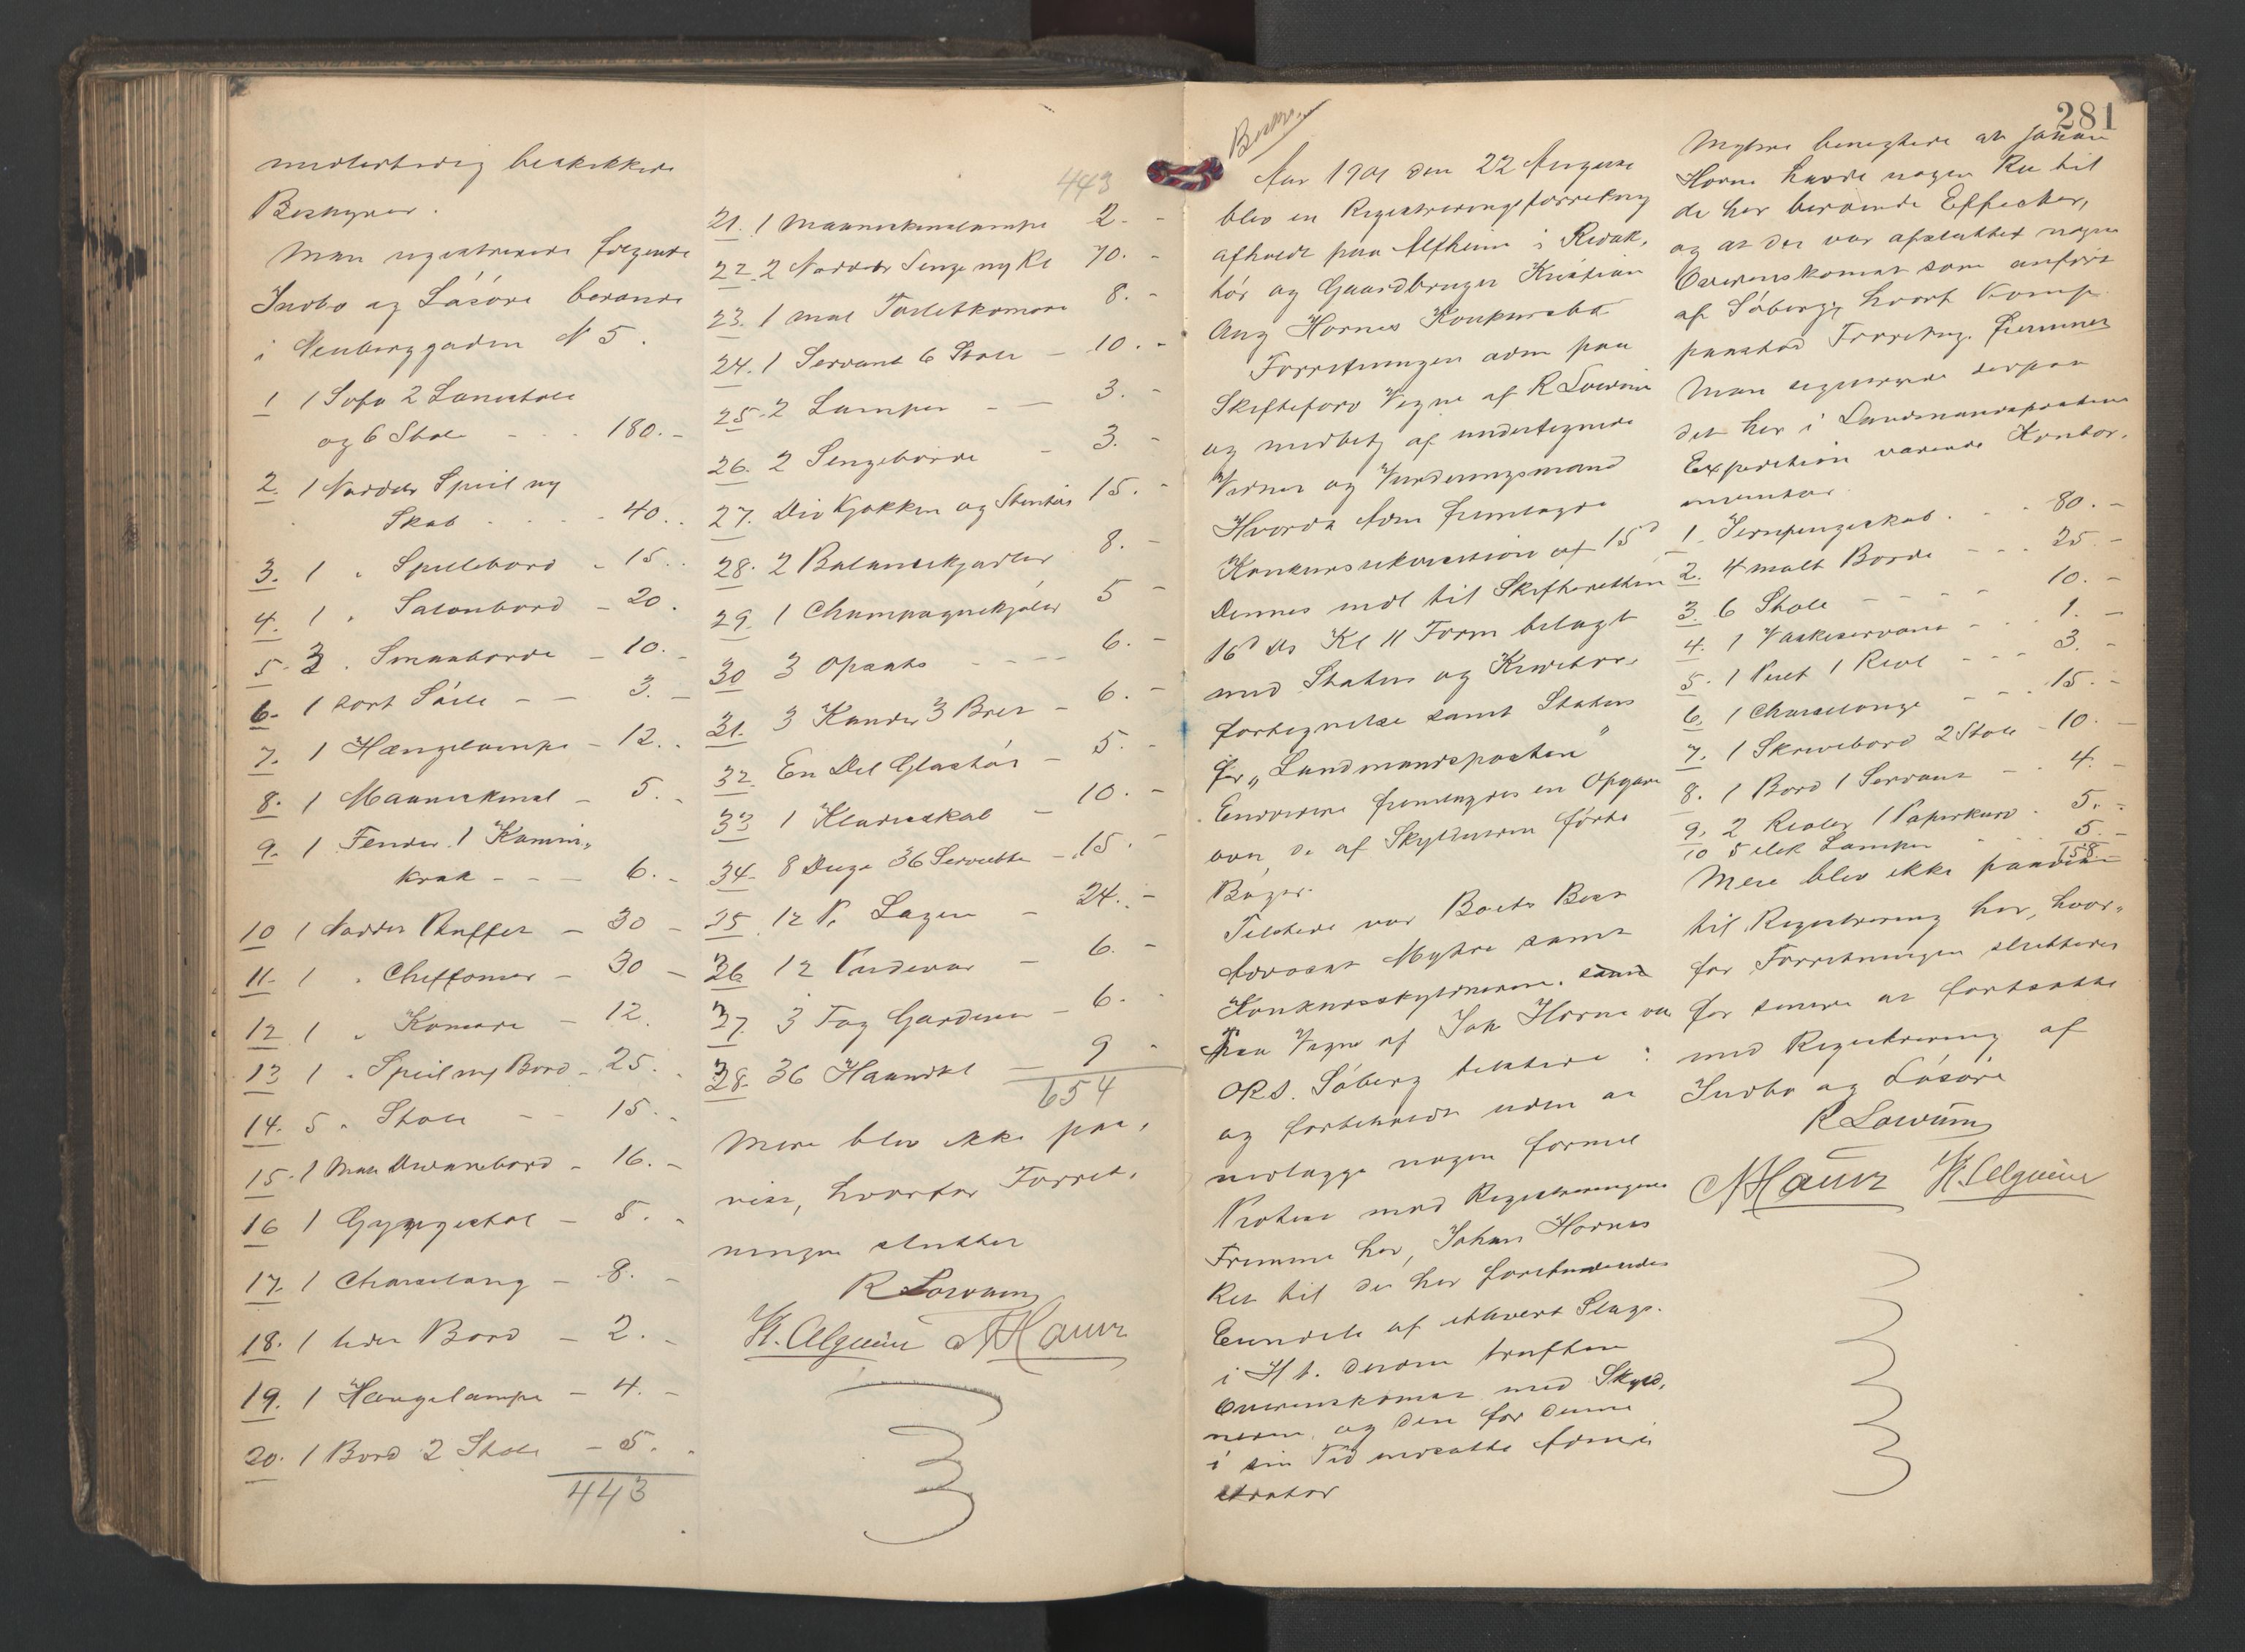 midlertidig beskikkede
Bestyrer.
Man registrerede følgende
Indbo og Løsøre beroende
i Neuberggaden N 5.
1 1 Sofa 2 Lænestole
og 6 Stole - - - 180. -
2. 1 Nødder Speil og
Skab - - - - 40. -
3. 1 " Spillebord - 15. -
4. 1 " Salonbord - 20.
5. 3 " Smaaborde - 10. -
6. 1 sort Søile - - 3. -
7. 1 Hængelampe - 12. -
8. 1 Maaneskinsl - 5. -
9. 1 Fender 1 Kamin-
krak - - - 6. -
10 1 Nødder Buffet - 30 -
11. 1 " Cheffonier - 30 -
12 1 " Komode - 12.
13 1 " Speil og Bord - 25. -
14. 5 " Stole - - 15. -
15. 1 Divanbord - 16. -
16 1 Gyngestol - 5. -
17. 1 Chaiselong - 8. -
18. 1 lidet Bord - 2. -
19. 1 Hængelampe - 4. -
20. 1 Bord 2 Stole - 5. -
443
443
21. 1 Maaneskinslampe 2. -
22. 2 Nødder Senge og Kl 70. -
23. 1 mal Toiletkomode 8. -
24. 1 Servant 6 Stole - 10. -
25. 2 Lamper - - 3. -
26. 2 Sengeborde - 3. -
27. Div Kjøkken og Stentøi 15. -
28. 2 Balancekjedler 8. -
29. 1 Champagnekjøler 5 -
30 3 Opsats - - - - 6. -
31. 3 Kander 3 Bret - 6. -
32. En Del Glastøi - 5. -
33 1 Klædeskab - 10. -
34. 8 Duge 36 Servietter - 15. -
35 12 P. Lagen - 24. -
36 12 Pudevar - 6. -
37. 3 Fag Gardiner - 6. -
38. 36 Haandkl - 9 -
654
Mere blev ikke paa-
vist, hvorfor Forret-
ningen sluttet
R Lowum
K. Elgheim N Hauer
281
Aar 1901 den 22 August
blev en Registreringsforretning
afholdt paa Alfheim i Redak-
tør og Gaardbruger Kristian
Aug Hornes Konkursbo
Forretningen adm paa
Skifteforv Vegne af R Lowum
og medbetj af undertegnede
Vidner og Vurderingsmænd
Hvorda Adm fremlagde
Konkursrekvisition af 15d
Dennes indl til Skifteretten
16d ds Kl 11 Form bilagt
med Status og Kreditor-
fortegnelse samt Status
for "Landmandsposten"
Endvidere fremlagdes en Opgave
over de af Skyldneren førte
Bøger.
Tilstede var Boets Best
Advokat Myhre samt
Konkursskyldneren.
Paa Vegne af Joh Horne var
ORS. Søberg tilstede
og forbeholdt uden at
nedlægge nogen formel
Protest mod Registreringens
Fremme her, Johan Hornes
Ret til de her forefindendes
Eiendele af ethvert Slags
i H t. derom truffen
Overenskomst med Skyld-
neren, og den for denne
i sin Tid indsatte Admini
strator
Myhre benegtede at Johan
Horne havde nogen Ret til
de her beroende Effekter,
og at der var afsluttet nogen
Overenskomst som anført
af Søberg, hvorf Komp
paastod Forretng. fremmet
Man registrerede derpaa
det her i Landmandspostens
Expedition værende Kontor-
inventar.
1. Jernpengeskab. - - 80. -
2. 4 malt Borde - - - 25. -
3. 6 Stole - - - - 10. -
4. 1 Vaskeservant - - - 1. -
5. 1 Pult 1 Reol - - - 3. -
6. 1 Chaiselonge - - - 15. -
7. 1 Skrivebord 2 Stole - 10. -
8. 1 Bord 1 Servant - - 4. -
9. 2 Reoler 1 Papirkurv - 5. -
10 5 elek Lamper - - 5. -
158
Mere blev ikke paavist
til Registrering her, hvor-
for Forretningen sluttedes
for senere at fortsætte
med Registrering af
Indbo og Løsøre
R Lowum
N Hauer K. Elgheim